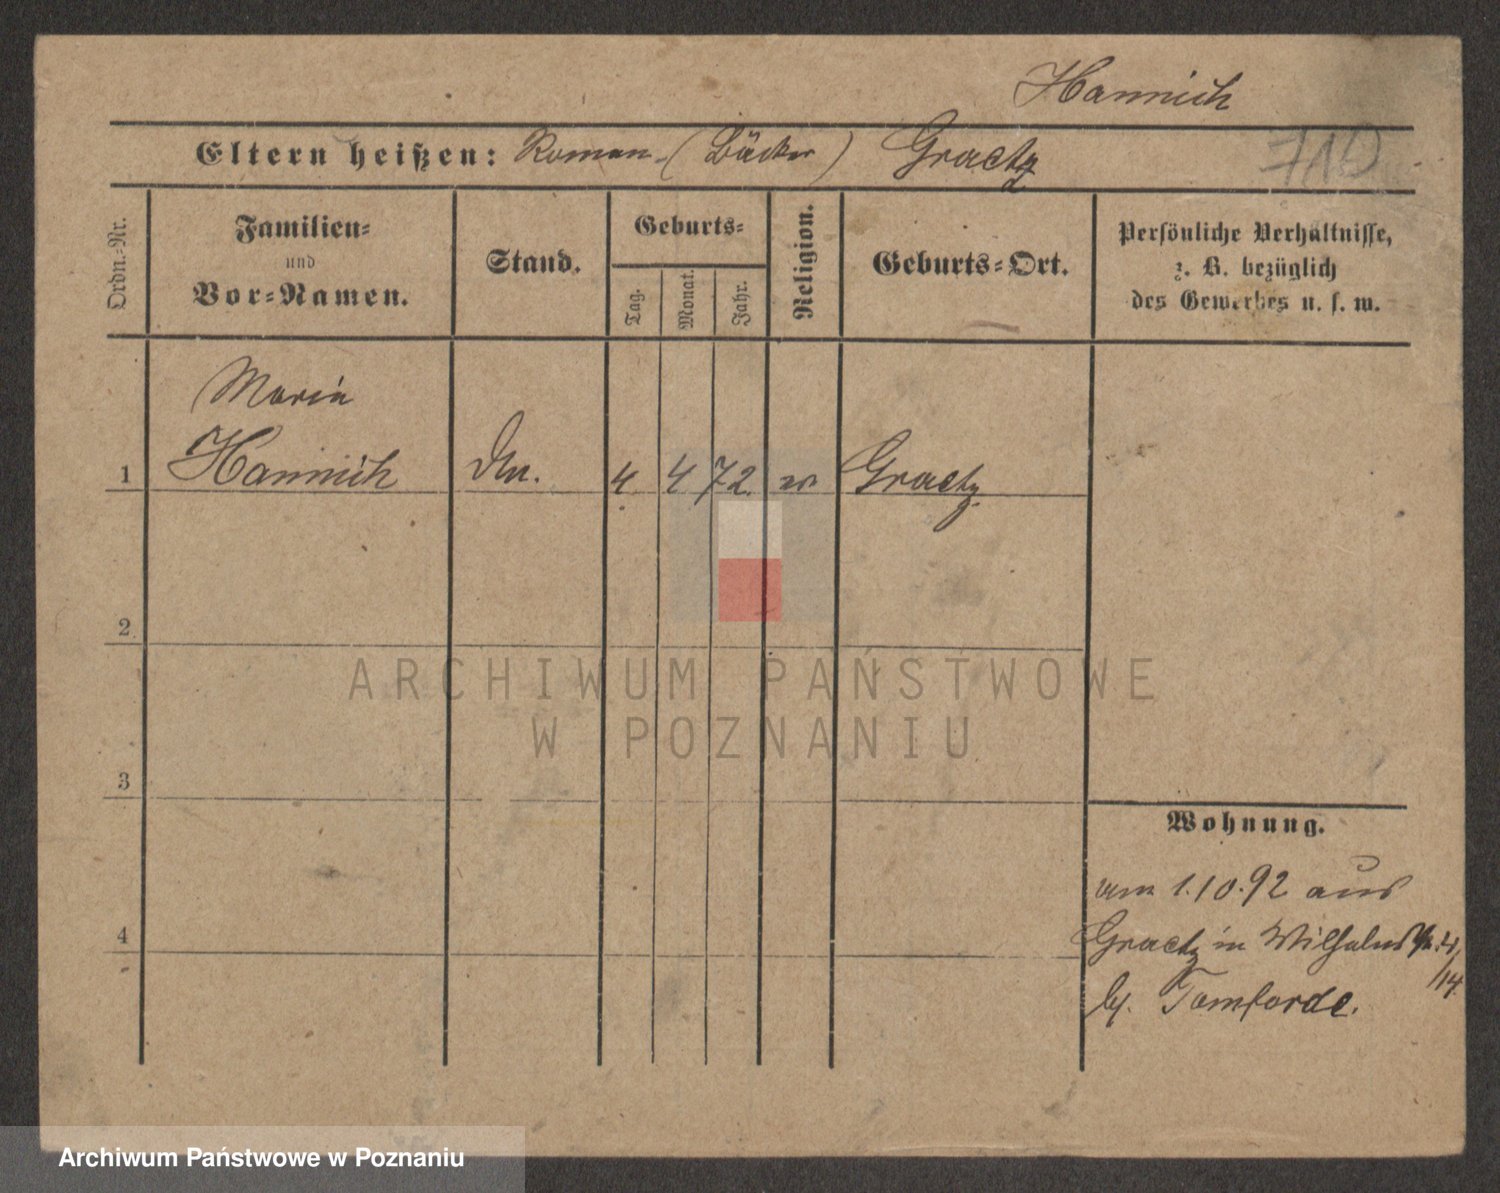 Hannich
Eltern heißen: Roman (Bäcker) Graetz
710
Ordn.-Nr.
Familien-
und
Vor-Namen.
Stand.
Geburts-
Tag.
Monat.
Jahr.
Religion.
Geburts-Ort.
Persönliche Verhältnisse,
z. B. bezüglich
des Gewerbes u. s. w.
Maria
1 Hannich 4 4 72 Graetz
2
3
4
Wohnung.
am 1.10.92 aus
Graetz in Wilhelms
/14
b. Tomforde.
ARCHIWUM PAŃSTWOWE
W POZNANIU
Archiwum Państwowe w Poznaniu